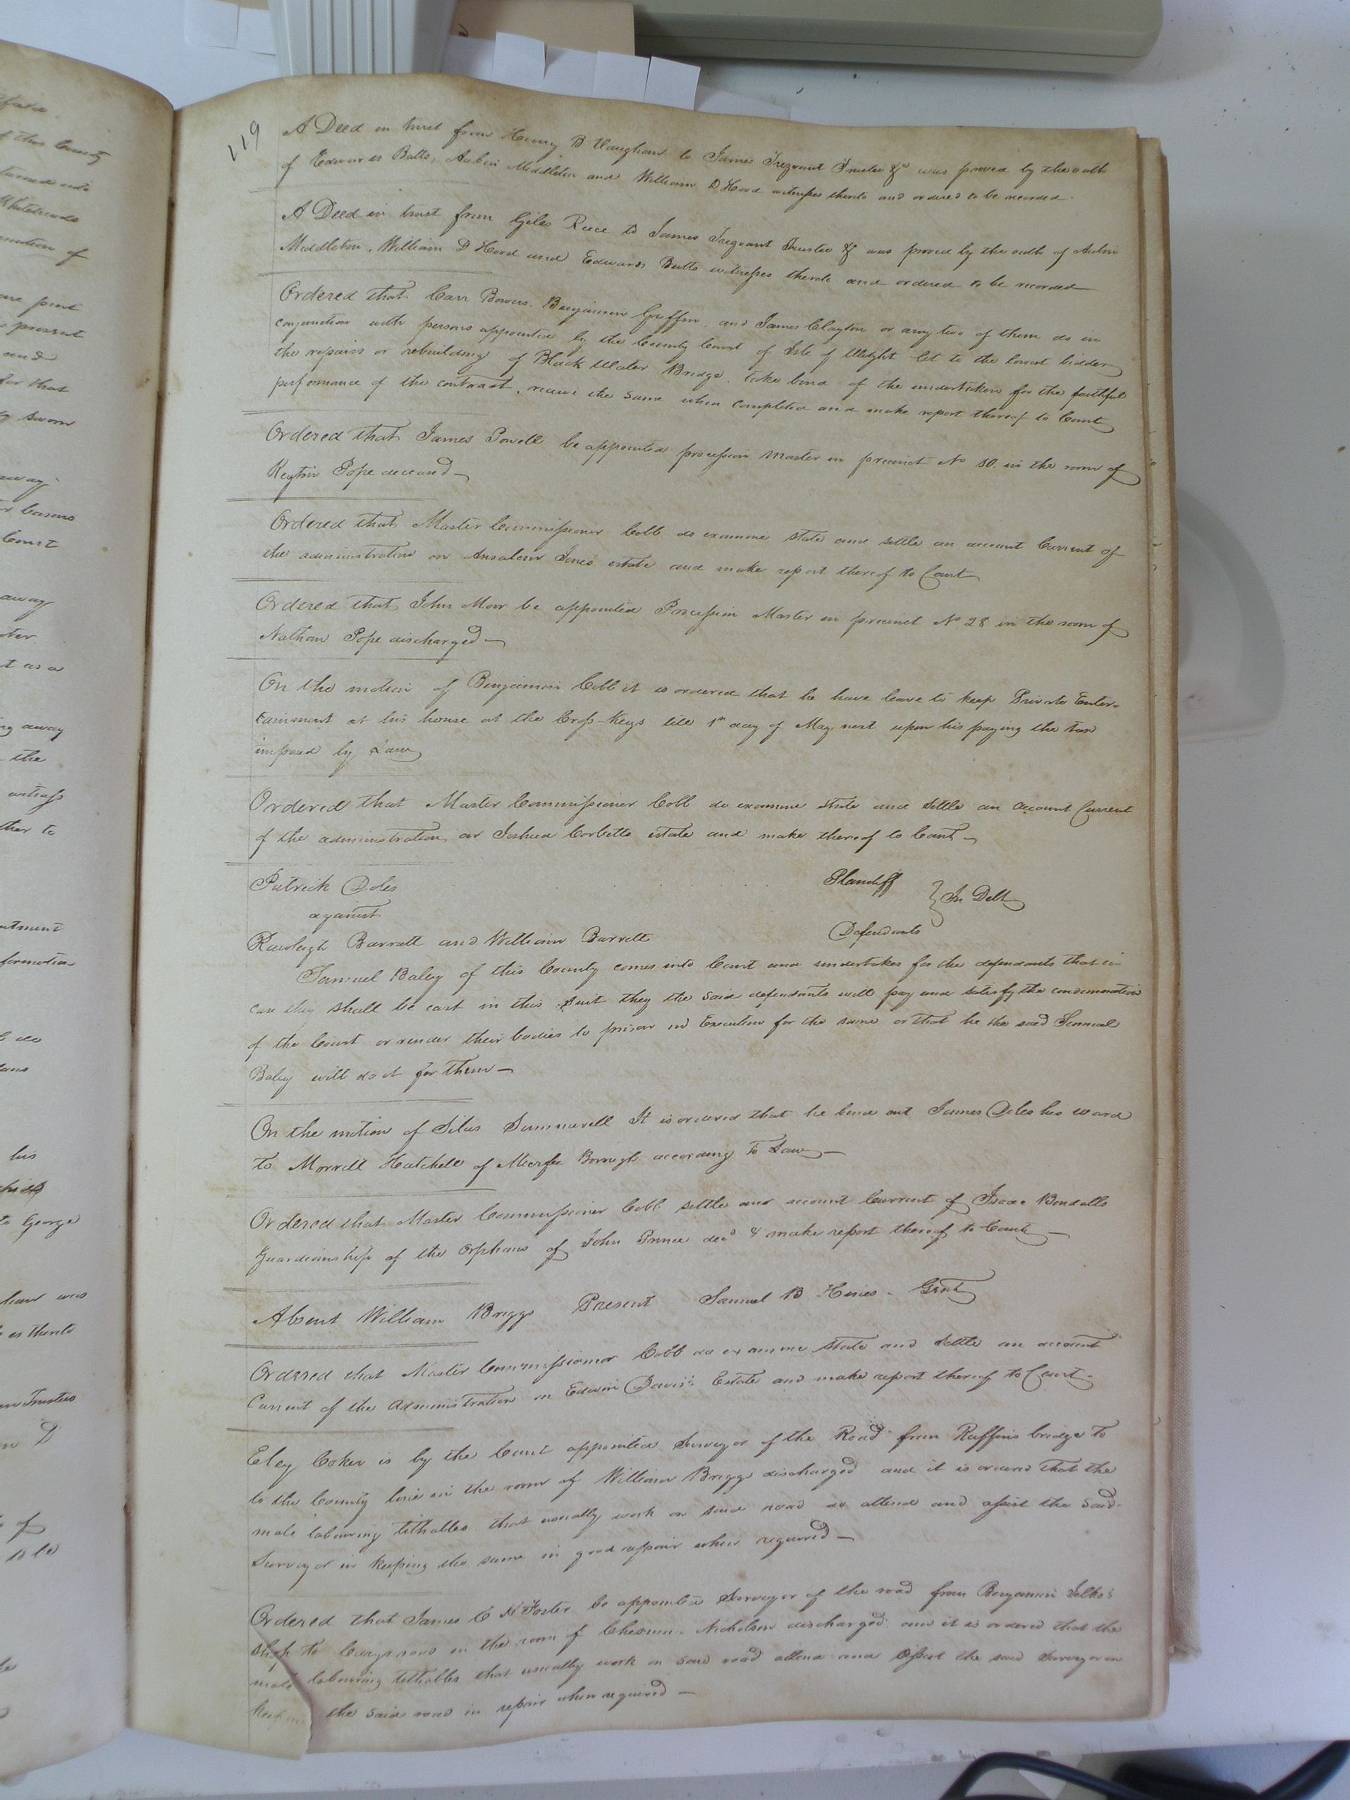 119
A Deed in trust from Henry B Vaughan to James Trezvant Trustee &c was proved by the oath
of Edwards Butts, Aubin Middleton and William D Hood witnesses thereto and ordered to be recorded.
A Deed in trust from Giles Reece to James Trezvant Trustee &c was proved by the oath of Aubin
Middleton, William D Hood and Edwards Butts witnesses thereto and ordered to be recorded
Ordered that Carr Bowers, Benjamin Griffin, and James Clayton or any two of them do in
conjunction with persons appointed by the County Court of Isle of Wight let to the lowest bidder
the repairs or rebuilding of Black Water Bridge, take bond of the undertaker for the faithful
performance of the contract, receive the same when completed and make report thereof to Court
Ordered that James Powell be appointed procession Master in precinct No 10. in the room of
Pope deceased —
Ordered that Master Commissioner Cobb do examine state and settle an account Current of
the administration on Ansalom Jones estate and make report thereof to Court
Ordered that John Moor be appointed Procession Master in precinct No 28 in the room of
Nathan Pope discharged —
On the motion of Benjamin Cobb it is ordered that he have leave to keep Private Enter-
tainment at his house at the Cross Keys till 1st day of May next upon his paying the tax
imposed by Law
Ordered that Master Commissioner Cobb do examine state and settle an account Current
of the administration on Joshua Corbetts estate and make thereof to Court —
Patrick Doles Plaintiff
against } In Debt
Rawleigh Barrett and William Barrett Defendants
Samuel Baley of this County comes into Court and undertakes for the defendants that in
case they shall be cast in this suit they the said defendants will pay and satisfy the condemnation
of the Court or render their bodies to prison in Execution for the same or that he the said Samuel
Baley will do it for them —
On the motion of Silas Summerell It is ordered that he bind out James Doles his ward
to Morrell Hatchell of Murfrees Borough according to Law —
Ordered that Master Commissioner Cobb settle and account Current of Isaac Bendalls
Guardianship of the Orphans of John Prince decd & make report thereof to Court —
Absent William Briggs Present Samuel B Hines. Gent
Ordered that Master Commissioner Cobb do examine State and Settle an account
Current of the Administration on Edwin Davis's Estate and make report thereof to Court.
Eley Coker is by the Court appointed Surveyor of the Road from Ruffins bridge to
to the County line in the room of William Briggs discharged and it is ordered that the
male labouring tithables that usually work on said road do attend and assist the said
Surveyor in keeping the same in good repair when required —
Ordered that James C N Foster be appointed Surveyor of the road from Benjamin
shop to road in the room of Nicholson discharged and it is ordered that the
male labouring tithables that usually work on said road attend and assist the said Surveyor in
keeping the said road in repair when required —